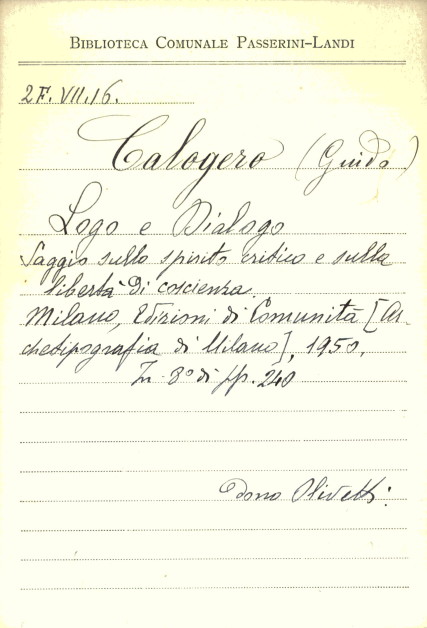 BIBLIOTECA COMUNALE PASSERINI-LANDI
2F.VII.16.
Calogero (Guido)
Logo e Dialogo
Saggio sullo spirito critico e sulla
libertà di coscienza.
Milano, Edizioni di Comunità [Ar-
chetipografia di Milano], 1950.
In 8° di pp. 240
Dono Olivetti.